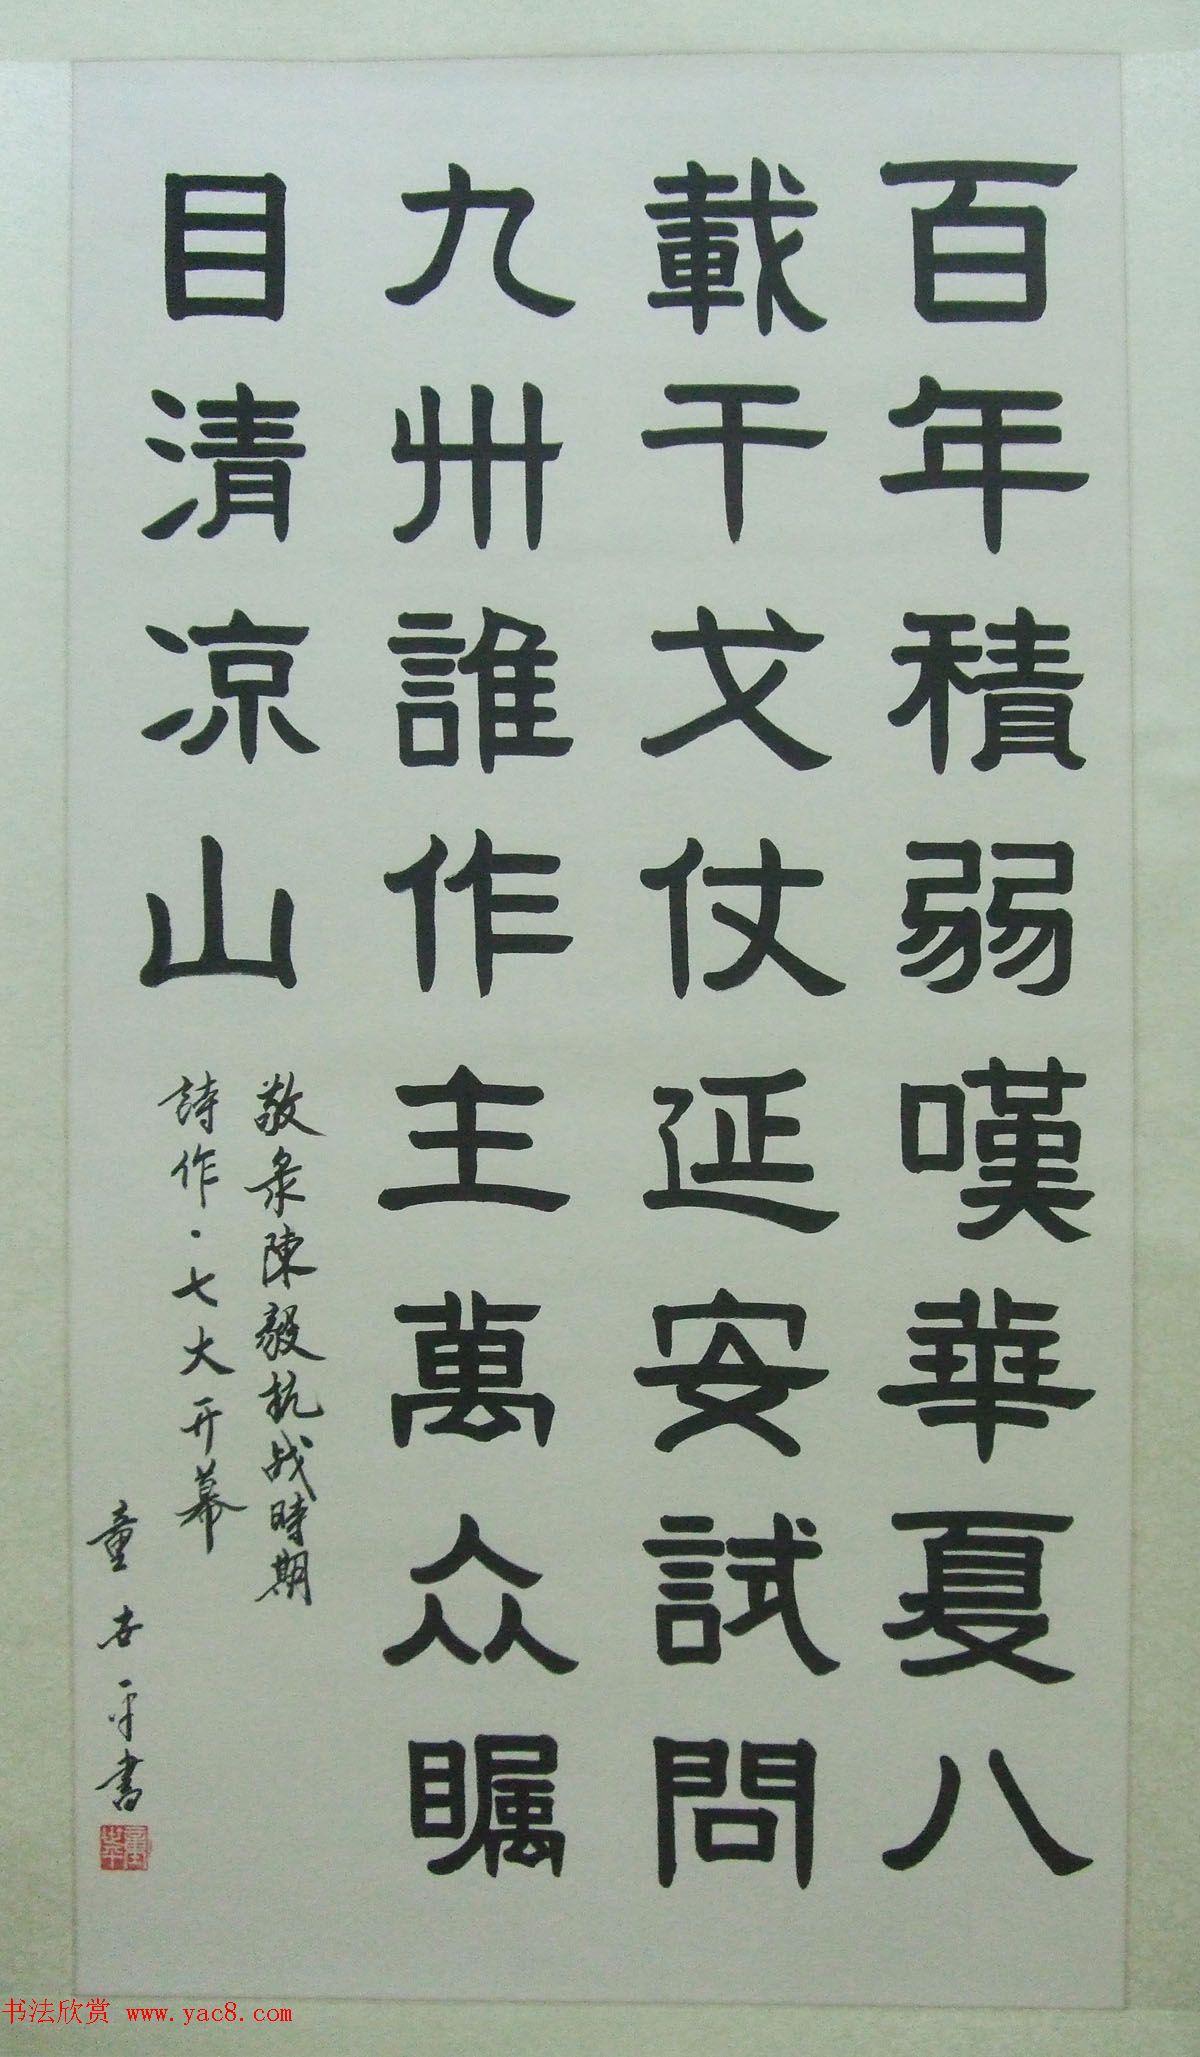 百年積弱嘆華夏八
載干戈仗延安試問
九州誰作主萬众瞩
目清凉山
敬录陳毅抗战時期
詩作·七大开幕
童世平書
书法欣赏 www.yac8.com